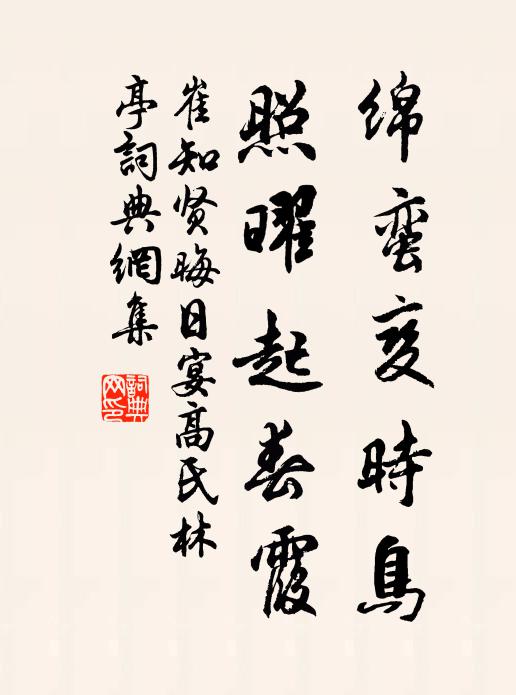 绵蛮变时鸟
照曜起春霞
崔知贤晦日宴高氏林
亭詞典網集
詞典网印